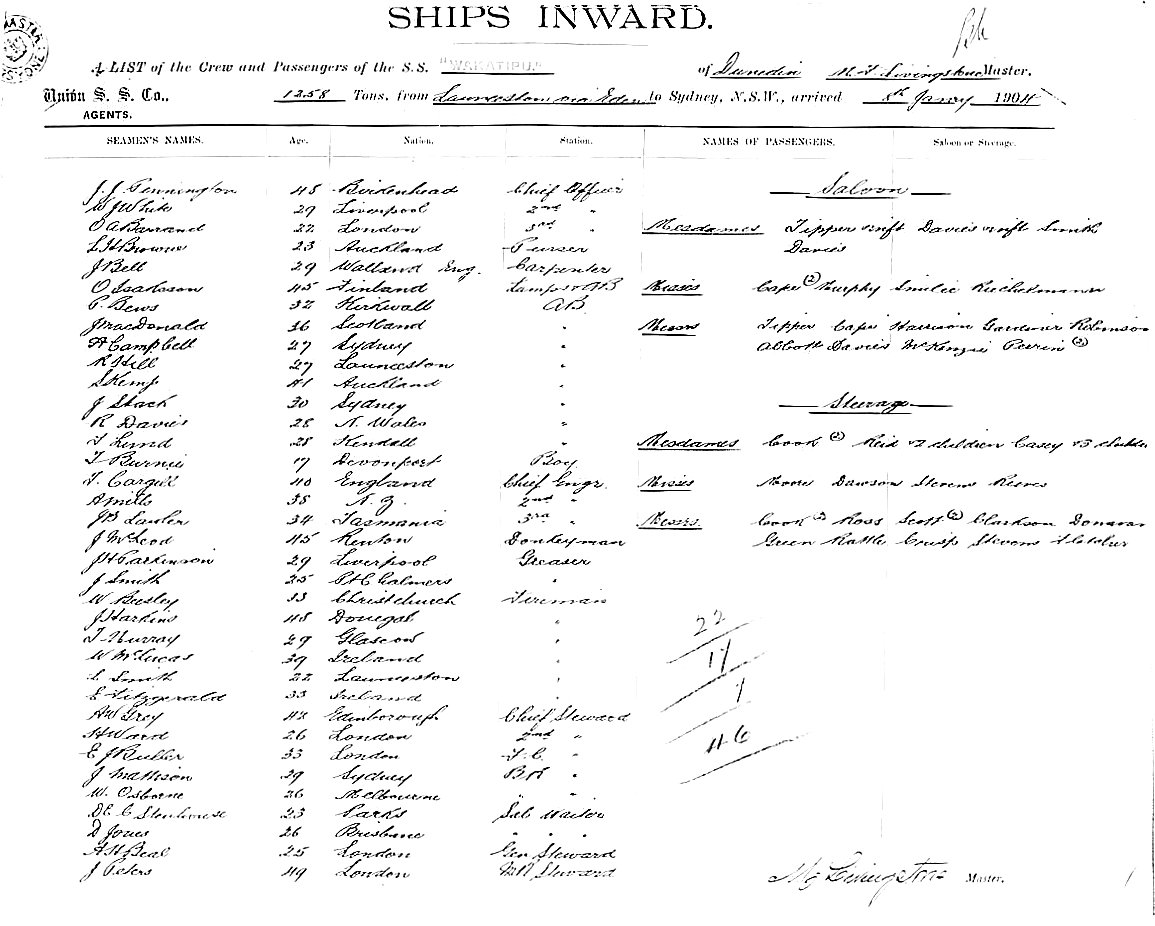 SHIPS INWARD.
A LIST of the Crew and Passengers of the S.S. "WAKATIPU." of Dunedin M. F. Livingstone Master,
Union S. S. Co., 1258 Tons, from Launceston via Eden to Sydney, N.S.W., arrived 8th Janry 1904
AGENTS.
SEAMEN'S NAMES. Age. Nation. Station. NAMES OF PASSENGERS. Saloon or Steerage.
J. J. Pennington 48 Birkenhead Chief Officer Saloon
W J White 29 Liverpool 2nd "
O A Barrand 22 London 3rd " Mesdames Tipper & inft Davies & inft Smith
L H Browne 23 Auckland Purser Davis
J Bell 29 Walland Eng. Carpenter
O Isaksson 45 Finland Lamps & AB Misses Cape (2) Murphy Smilie
P. Bews 32 Kirkwall AB
J MacDonald 36 Scotland Messrs Tipper Cape Harrison Gardiner Robinson
A Campbell 27 Sydney " Abbott Davies McKenzie Perrin (2)
R Hill 27 Launceston "
S Kemp 41 Auckland "
J Stack 30 Sydney " Steerage
R Davies 28 N. Wales "
T Lund 28 Kendall " Mesdames Cook (2) Reid & 2 children Casey & 3 children
T Burnie 17 Devonport Boy
T. Cargill 40 England Chief Engr. Misses Moore Dawson Stevens Reeves
A Mills 38 N. Z. 2nd "
J B Lawler 34 Tasmania 3rd " Messrs. Cook Ross Scott (2) Clarkson Donavan
J McLeod 45 Renton Donkeyman Green Rattle Crisp Stevens Fletcher
J H Parkinson 29 Liverpool Greaser
J Smith 25 Pt Chalmers "
W Beesley 33 Christchurch Fireman
J Harkins 48 Donegal "
T Murray 29 Glascow "
W McLucas 39 Ireland "
L Smith 22 Launceston "
E Fitzgerald 33 Ireland
A W Grey 42 Edinborough Chief Steward
H Ward 26 London 2nd "
E J Butler 33 London F. C. "
J Mathison 29 Sydney B R "
W. Osborne 26 Melbourne " "
D E C Stenhouse 23 Parks Sal Waiter
D Jones 26 Brisbane " "
A H Beal 25 London Gen Steward
J Peters 49 London Steward
22
17
7
46
M F Livingstone Master.